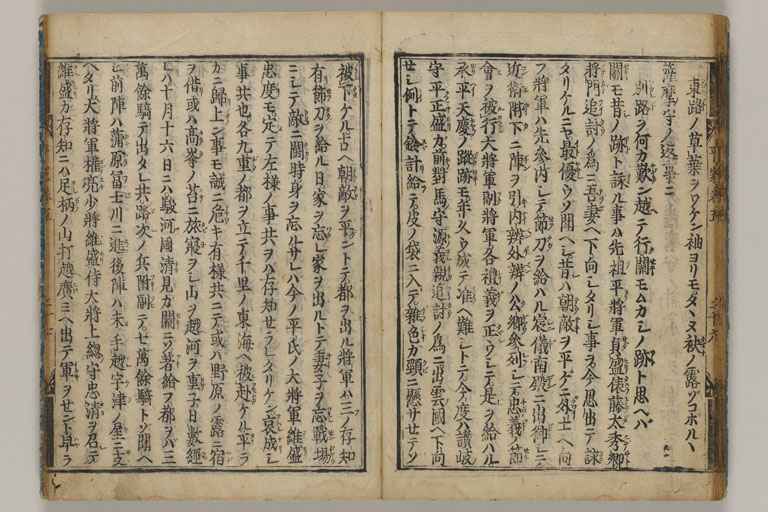 東路ノ草葉ヲワケン袖ヨリモタヽヌ袂ノ露ゾコボルヽ
薩摩守ノ返事ニ
別路ヲ何カ歎ン越テ行關モムカシノ跡ト思ヘバ
關モ昔ノ跡ト詠ル事ハ先祖平將軍貞盛俵藤太秀郷
將門追討ノ爲ニ吾妻ヘ下向シタリシ事ヲ今思出テ詠
タリケルニヤ最優ウゾ聞ヘシ昔ハ朝敵ヲ平ゲニ外土ヘ向
フ將軍ハ先參内シテ節刀ヲ給ハル宸儀南殿ニ出御シテ
近衞階下ニ陣ヲ引内辨外辨ノ公卿參列シテ忠義ノ節
會ヲ被行大將軍副將軍各禮義ヲ正ウシテ是ヲ給ハル
承平天慶ノ蹤跡モ年久ウ成テ准ヘ難シトテ今度ハ讃岐
守平正盛カ前對馬守源義親追討ノ爲ニ出雲國ヘ下向
せシ例トテ鈴計給テ皮ノ袋ニ入テ雜色カ頸ニ懸サせテゾ
被下ケル古ヘ朝敵ヲ平ントテ都ヲ出ル將軍ハ三ノ存知
有節刀ヲ給ル日家ヲ忘レ家ヲ出ルトテ妻子ヲ忘戰場
ニシテ敵ニ鬪時身ヲ忘ルサレハ今ノ平氏ノ大將軍維盛
忠度モ定テ左樣ノ事共ヲハ存知せラレタリケン哀成シ
事共也各九重ノ都ヲ立テ千里ノ東海ヘ被赴ケル平ラ
カニ歸上ン事モ誠ニ危キ有樣共ニテ或ハ野原ノ露ニ宿
ヲ借或ハ高峯ノ苔ニ旅寢ヲシ山ヲ越河ヲ重子日數經
レハ十月十六日ニハ駿河國清見カ關ニゾ著給フ都ヲハ三
萬餘騎テ出タレ共路次ノ兵附副テ七萬餘騎トゾ聞ヘ
シ前陣ハ蒲原冨士川ニ進後陣ハ未手越宇津ノ屋ニ支
ヘタリ大將軍權亮少將維盛侍大將上總守忠清ヲ召テ
維盛カ存知ニハ足柄ノ山打越廣ミヘ出テ軍ヲせント早ラ